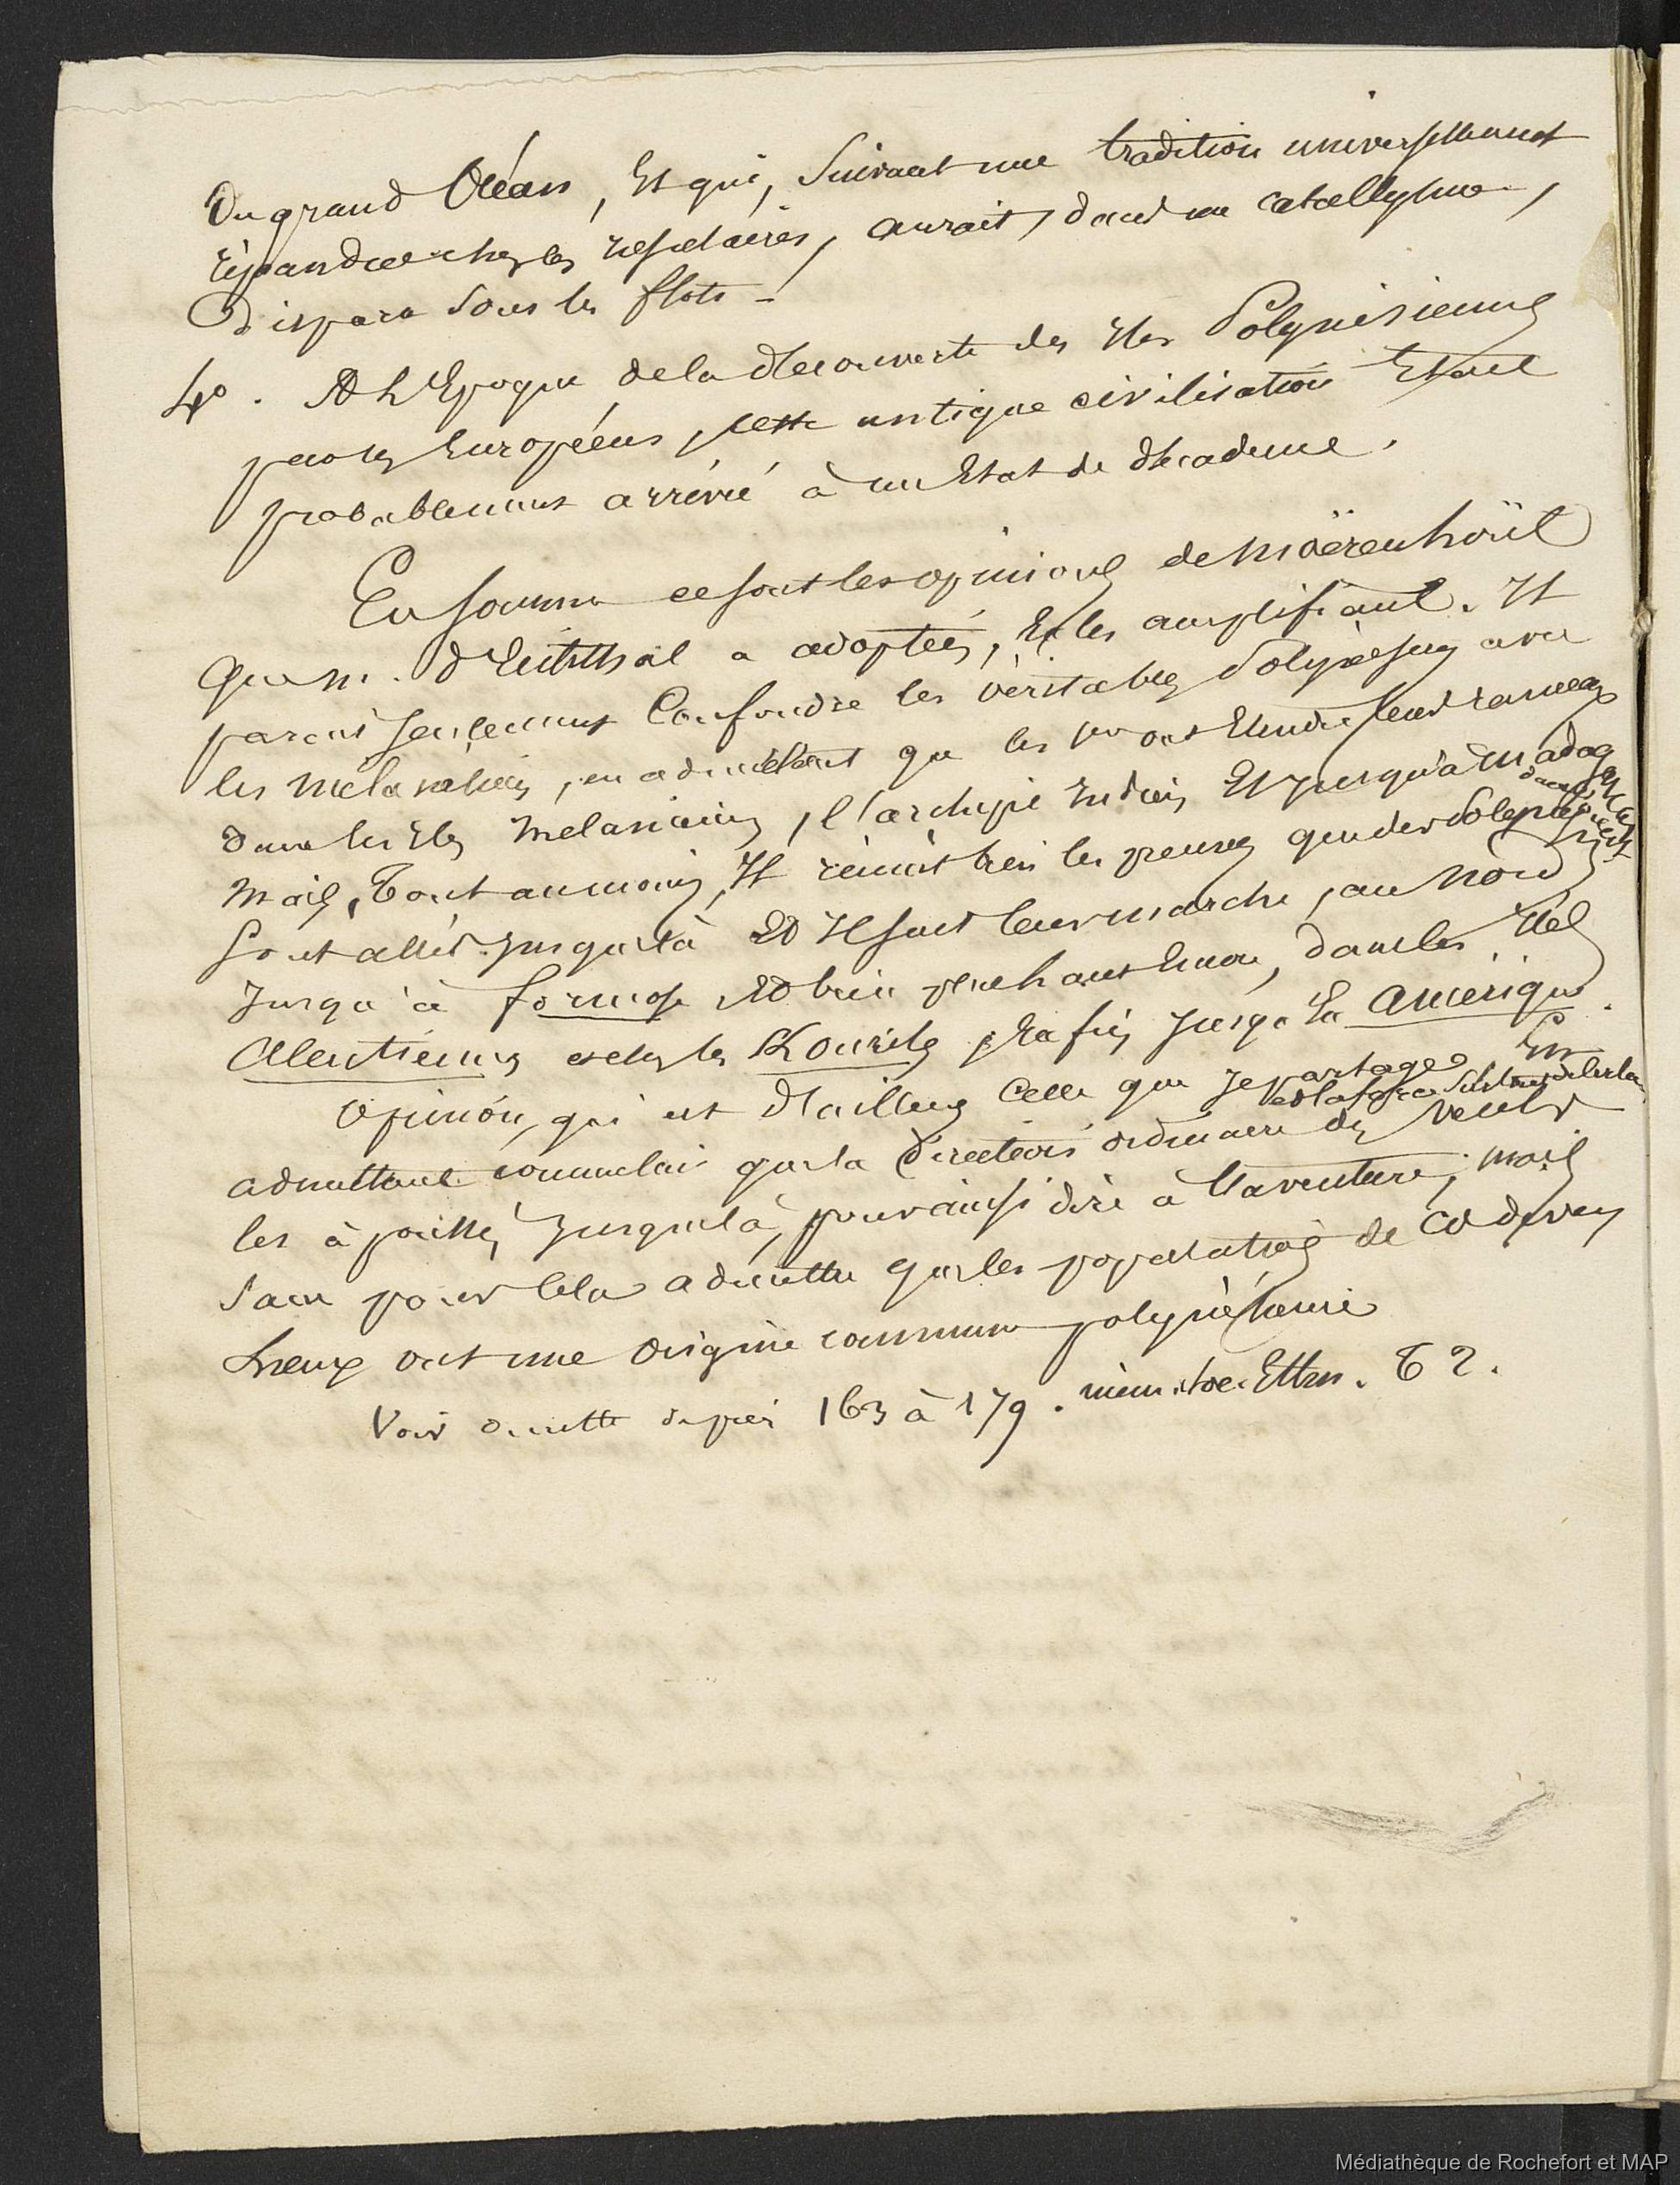 Du grand Océan, Et qui, Suivant une tradition universellement
répandue chez les insulaires, aurait, dans un catacllysme,
disparu sous les flots -
4°. A L'Epoque de la découverte des Iles Polynésiennes
par les Européens, cette antique civilisation Etait
probablement arrivée à un Etat de décadence.
En somme ce sont les opinions de Moërenhoüt
que M. d'Eichthal a adoptées, Et les amplifiant. Il
parait seulement Confondre les véritables Polynésiens avec
les Mélanésiens, en admettant que les 1ers ont Etendu leurs rameaux
dans les Iles Mélanésiennes, l'archipel Indien Et jusqu'à Madagascar
Mais, Tout au moins, Il réunit bien les preuves que des Polynésiens
Sont allés jusques là Et Il suit leur marche, au Nord
Jusqu'à formose Et bien plus haut Encore, dans les Iles
Aleutiennes et les Kouriles, Enfin jusqu'En Amérique.
Opinion, qui est d'ailleurs Celle que je partage, En
admettant comme lui que la direction ordinaire des vents
les a poussés jusques là, pour ainsi dire à l'aventure, mais
Sans pour Cela admettre que les populations de Ces divers
Lieux ont une origine commune polynésienne
Voir du reste depuis 163 à 179. mém. soc. Ethn. T 2.